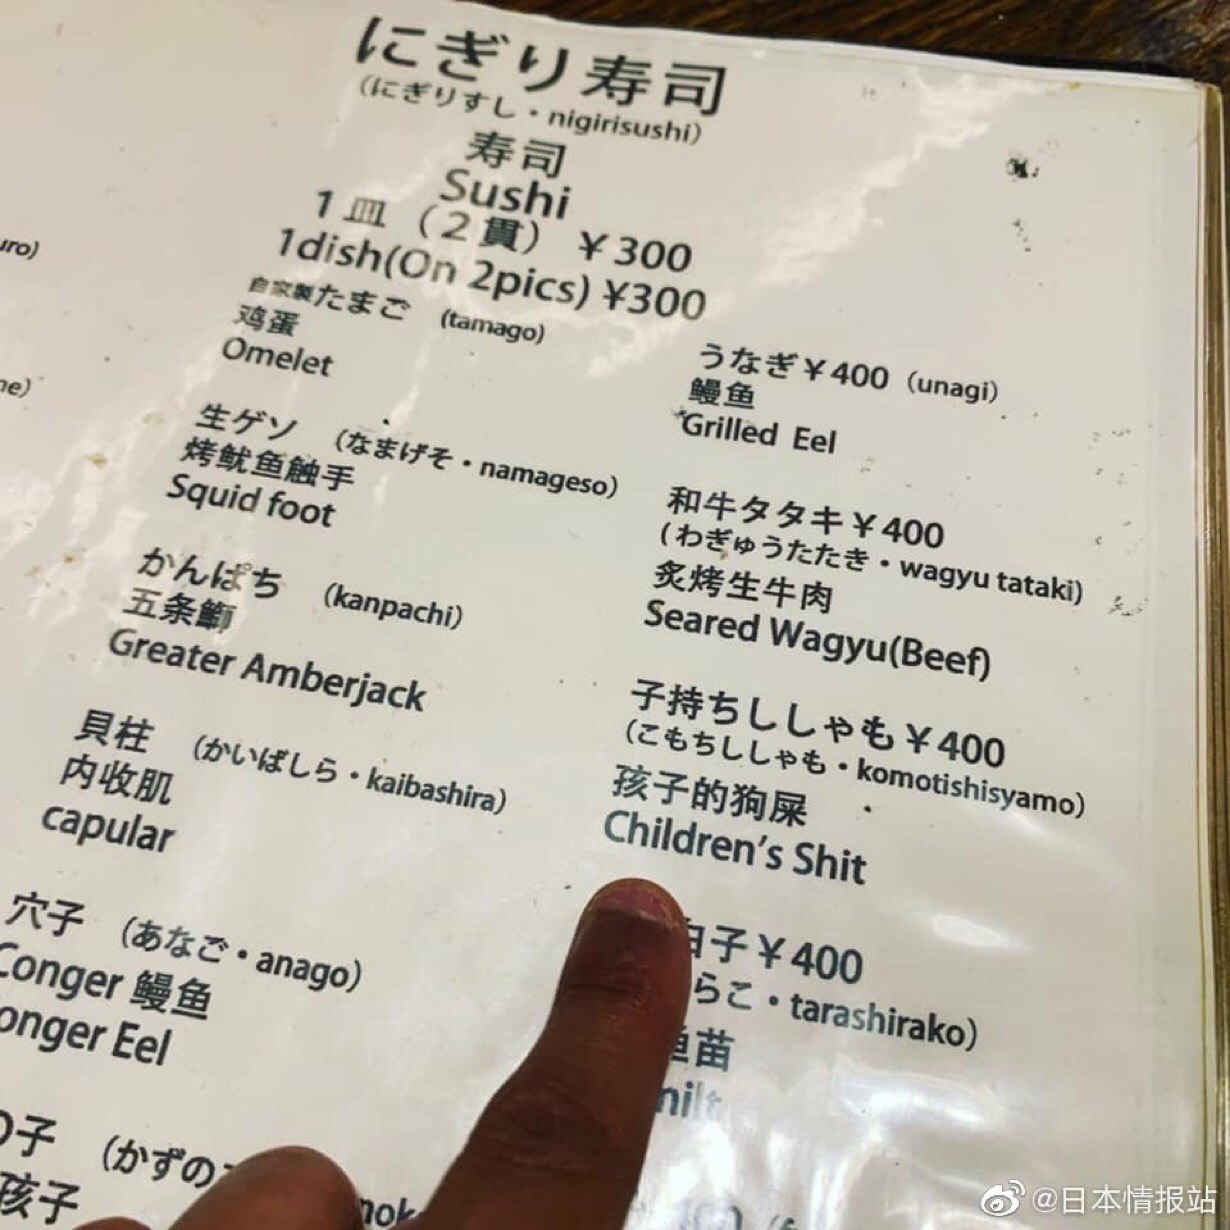 にぎり寿司
(にぎりすし・nigirisushi)
寿司
Sushi
1皿（2貫）￥300
1dish(On 2pics) ¥300
自家製たまご (tamago)
鸡蛋
Omelet
生ゲソ (なまげそ・namageso)
烤鱿鱼触手
Squid foot
かんぱち (kanpachi)
五条鰤
Greater Amberjack
貝柱 (かいばしら・kaibashira)
内收肌
capular
穴子 (あなご・anago)
Conger 鳗鱼
onger Eel
の子 (かずの
孩子
uro)
ne)
うなぎ￥400 (unagi)
鳗鱼
Grilled Eel
和牛タタキ￥400
(わぎゅうたたき・wagyu tataki)
炙烤生牛肉
Seared Wagyu(Beef)
子持ちししゃも￥400
(こもちししゃも・komotishisyamo)
孩子的狗屎
Children's Shit
白子￥400
らこ・tarashirako)
鱼苗
milt
@日本情报站